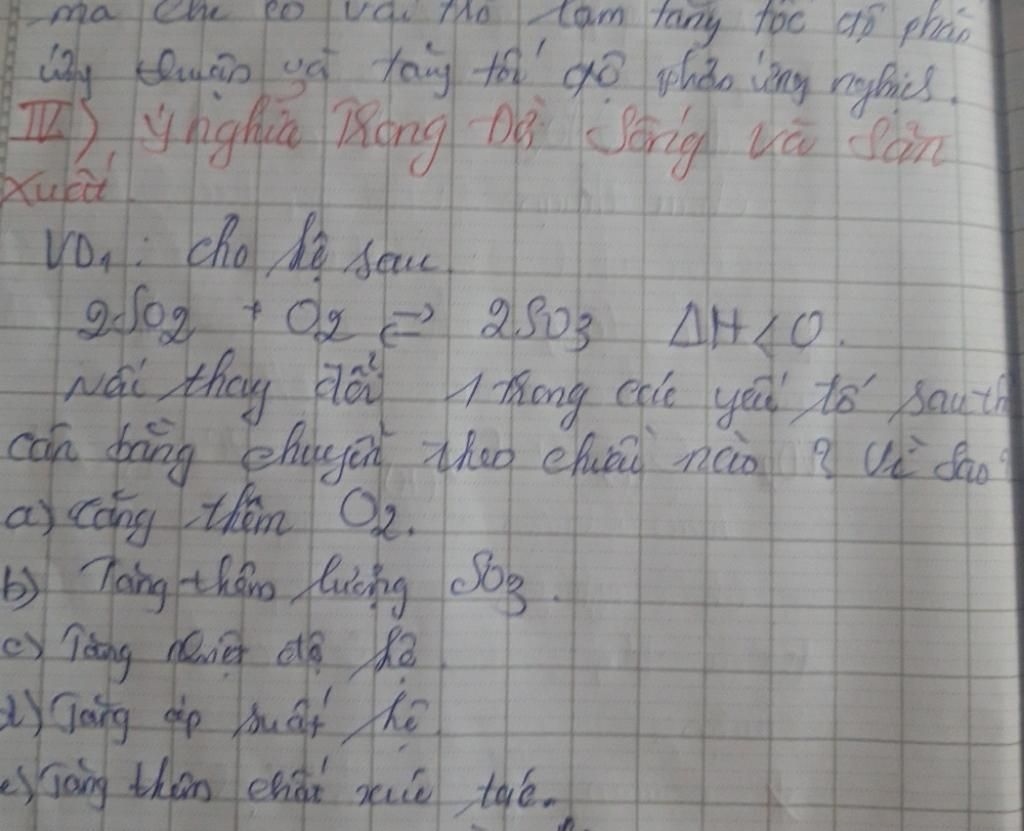 mà chỉ có vai trò làm tăng tốc độ phản
ứng thuận và tăng tốc độ phản ứng nghịch.
IV) Ý nghĩa Trong Đời Sống và Sản
xuất
VD1: Cho hệ sau
2SO2 + O2 ⇌ 2SO3 ΔH<0.
Nếu thay đổi 1 trong các yếu tố sau th
cân bằng chuyển theo chiều nào? Vì sao?
a) Tăng thêm O2.
b) Tăng thêm lượng SO3.
c) Tăng nhiệt độ hệ
d) Tăng áp suất hệ
e) Tăng thêm chất xúc tác.